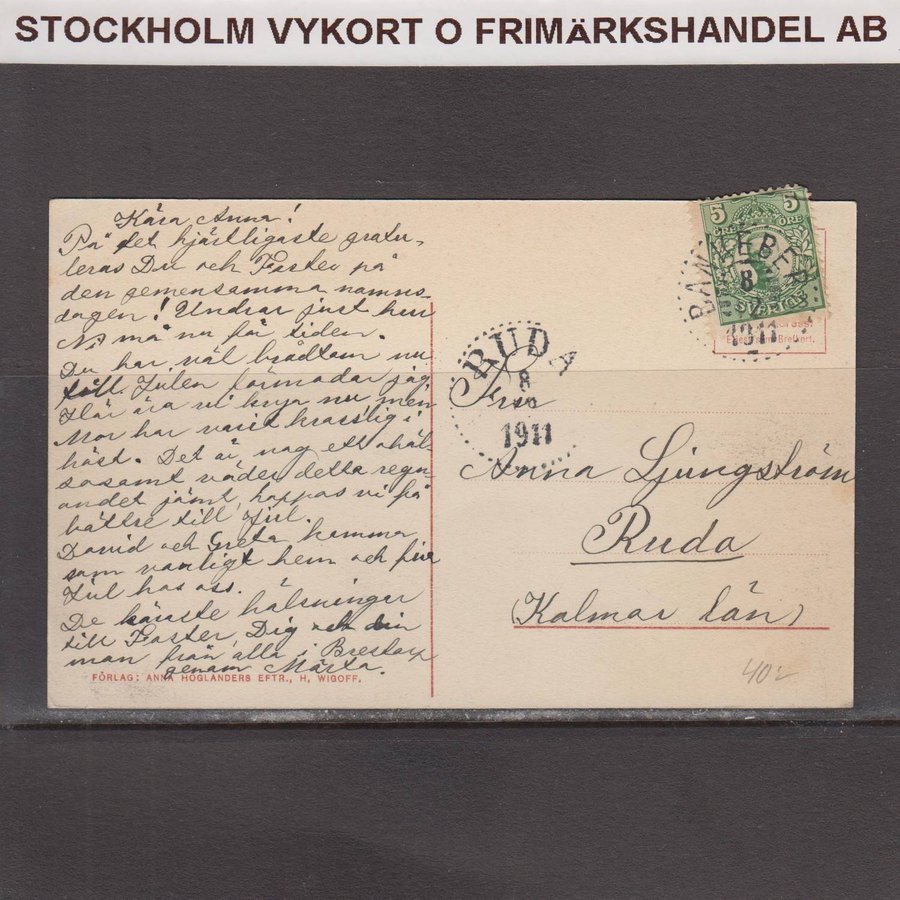 STOCKHOLM VYKORT O FRIMÄRKSHANDEL AB
Kära Anna!
På det hjärtligaste gratu-
leras Du och Faster på
den gemensamma namns-
dagen! Undrar just huru
Ni må nu för tiden.
Du har väl brådtom nu
till Julen förmodar jag.
Här äro vi krya nu men
Mor har varit krasslig i
höst. Det är nog ett ohäl-
sosamt väder detta regn-
andet jämt, hoppas vi få
bättre till Jul.
David och Greta komma
som vanligt hem och fira
Jul hos oss.
De käraste hälsningar
till Faster, Dig och din
man från alla i
genom Märta.
FÖRLAG: ANNA HÖGLANDERS EFTR., H, WIGOFF.
5 5
ÖRE ÖRE
SVERIGE
BANKEBERG
8
12
1911
Brefkort.
RUDA
8
1911
Fru
Anna Ljungström
Ruda
(Kalmar län)
40:-